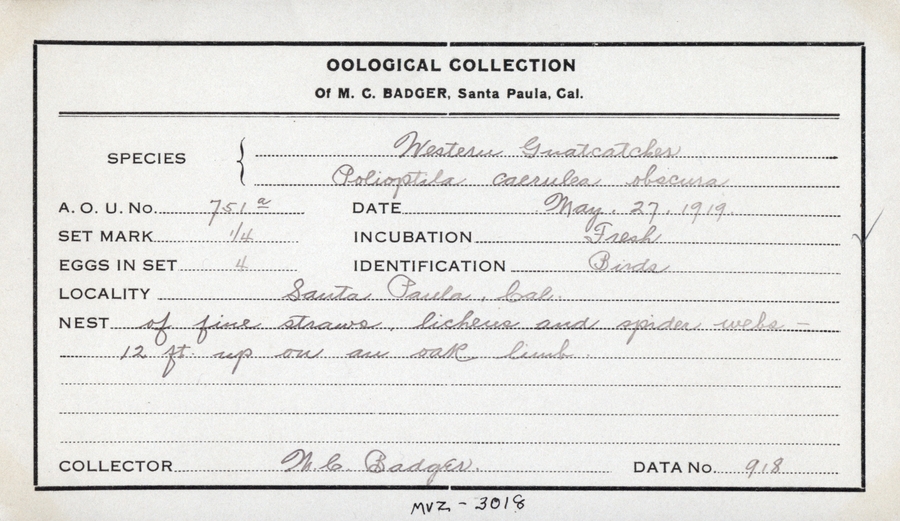 OOLOGICAL COLLECTION
Of M. C. BADGER, Santa Paula, Cal.
SPECIES Western Gnatcatcher
Polioptila caerulea obscura
A. O. U. No. 751 a DATE May. 27. 1919.
SET MARK 1/4 INCUBATION Fresh
EGGS IN SET 4 IDENTIFICATION Birds
LOCALITY Santa Paula, Cal.
NEST of fine straws, lichens and spider webs —
12 ft. up on an oak limb.
COLLECTOR M. C. Badger. DATA No. 918
MVZ - 3018